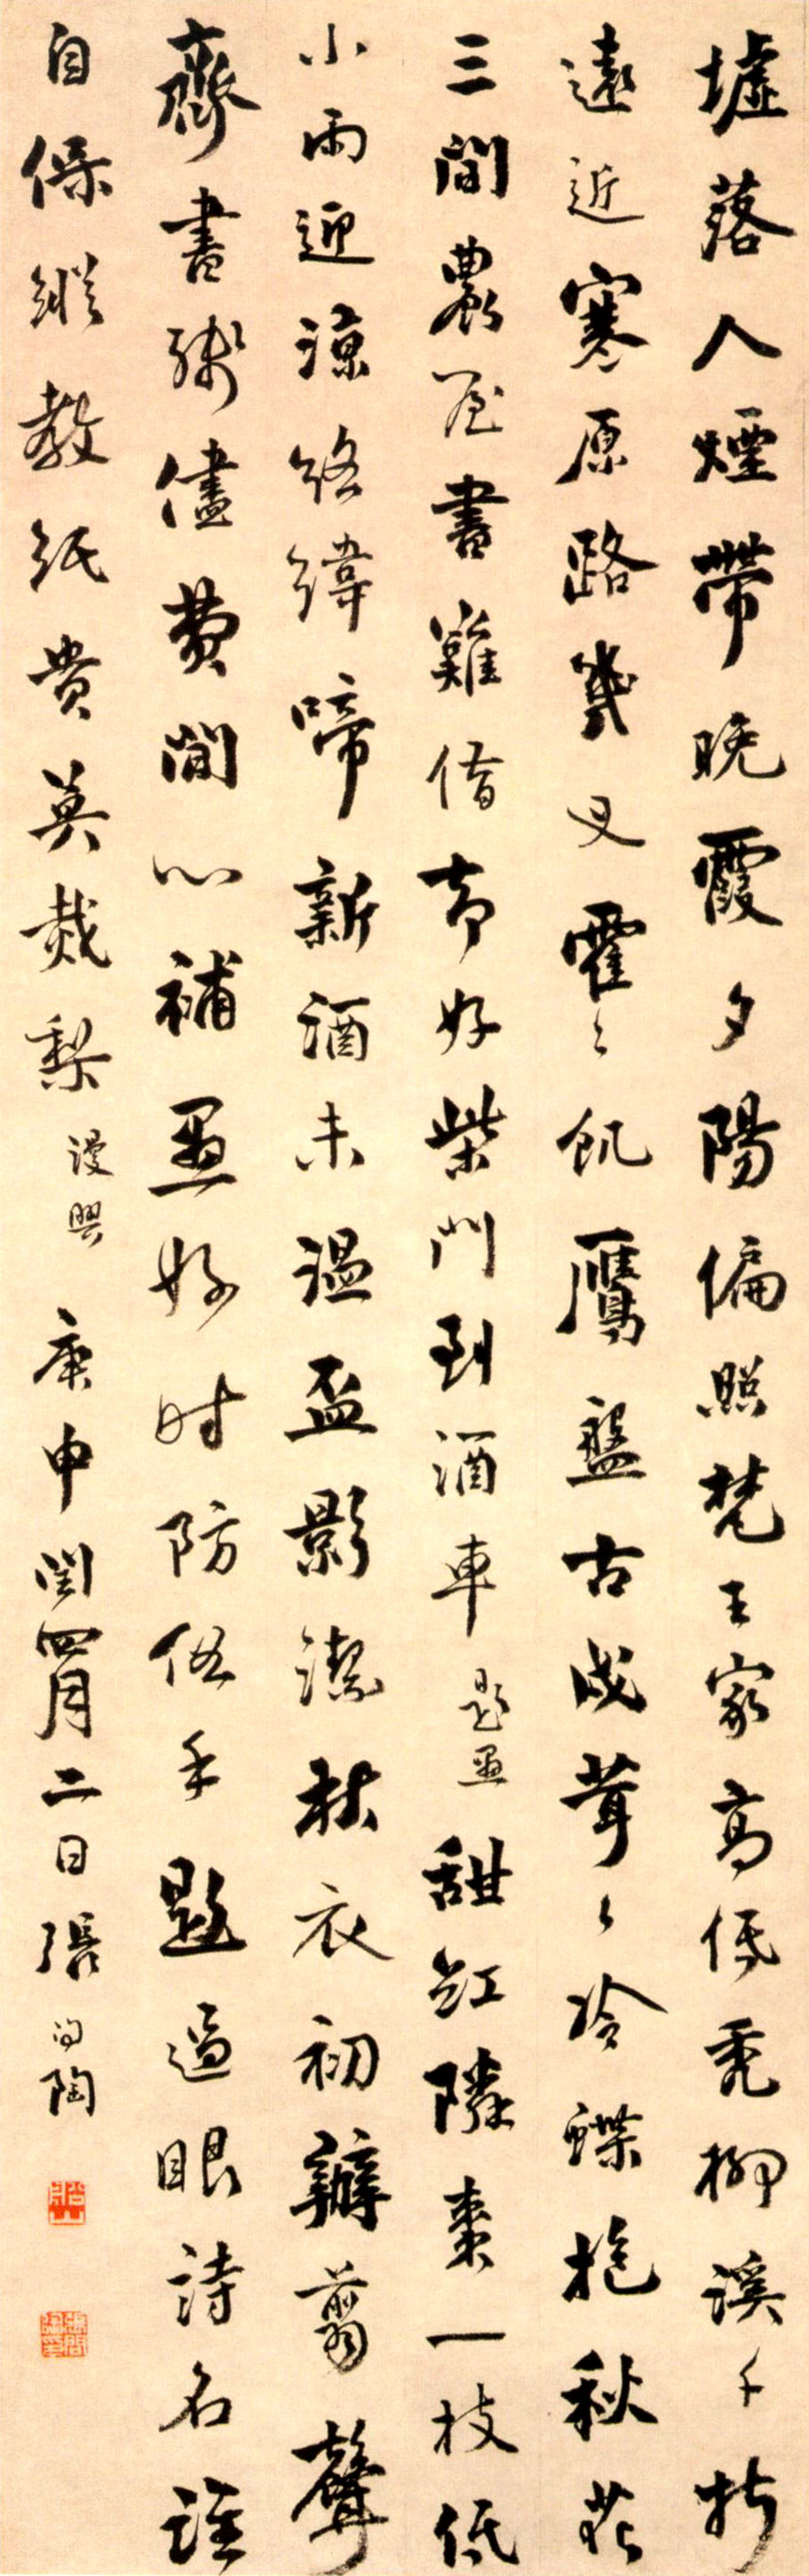 墟落人煙帶晚霞夕陽偏照梵王家高低禿柳溪千折
遠近寒原路幾叉霍〻飢鷹盤古戍茸〻冷蝶抱秋花
三間農屋書難借却好柴門到酒車題畫甜紅隣棗一枝低
小雨迎涼絡緯啼新酒未温盃影潔秋衣初辦翦聲
齊書殘儘費閒心補畫好時防俗手題過眼詩名誰
自保縱教紙貴莫栽梨漫興庚申閏四月二日張問陶
船山